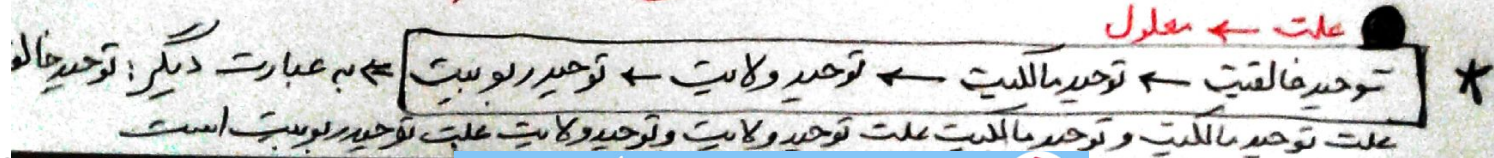 علت ← معلول
* توحید خالقیت ← توحید مالکیت ← توحید ولایت ← توحید ربوبیت ⇐ به عبارت دیگر: توحید خالق
علت توحید مالکیت و توحید مالکیت علت توحید ولایت و توحید ولایت علت توحید ربوبیت است